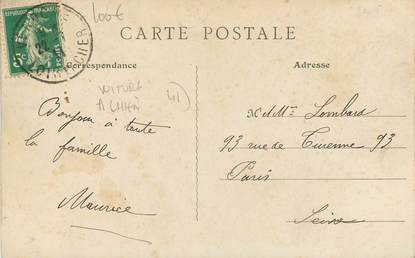 100€
CARTE POSTALE
Correspondance
Adresse
VOITURE
A CHIEN
41
Bonjour à toute
la famille
Maurice
M et Me Lombard
93 rue de Turenne 93
Paris
Seine
5c
CHER